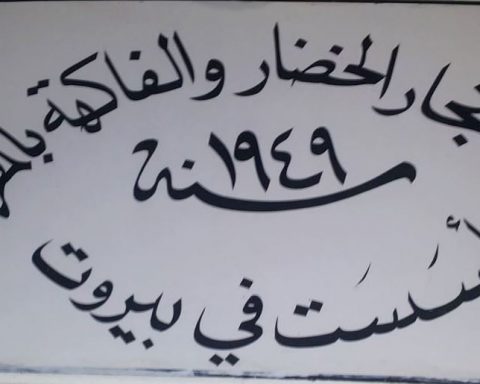 تجار الخضار والفاكهة بالمفر
سنة ١٩٤٩
أسست في بيروت